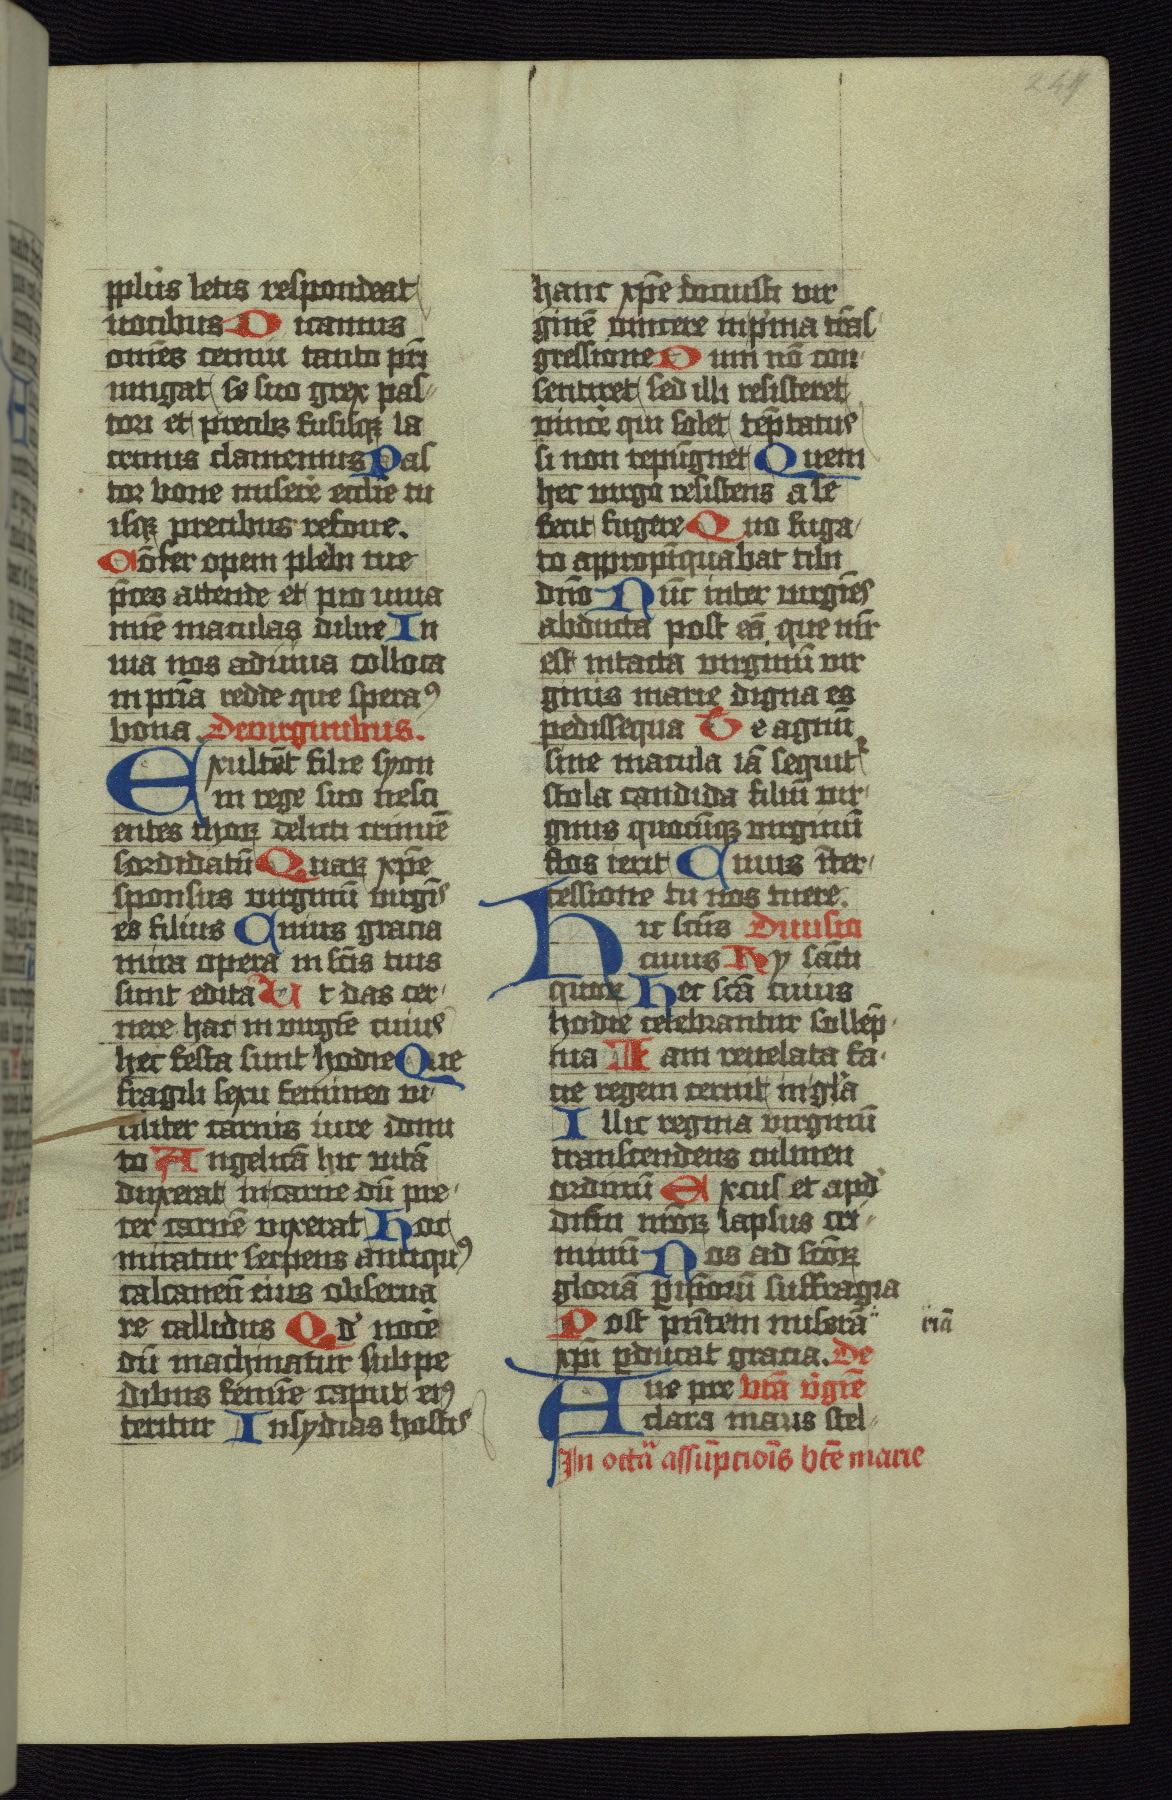 241
pplus letis respondeat
uocibus Dicamus
omēs cernui tanto pri
uigat se suo grex pas
tori et precibz fusisqz la
crimis clamemus Pas
tor bone miserē ecclie tu
isqz precibus refoue.
Cōfer opem plebi tue
p̄ces attende et pio unia
nuē maculas dilue In
uia nos adiuua colloca
in pria redde que speraꝰ
bona. De uirginibus.
Exultēt filie syon
in rege suo nesci
entes thoꝝ delicti crimīe
sordidatū Quaꝝ xp̄e
sponsus uirginū uirgīs
es filius Cuius gracia
mira opera in sc̄is tuis
sunt edita Ut das cer
nere hac in uirgīe cuius
hec festa sunt hodie Que
fragili sexu femineo ui
riliter carnis iure domi
to Angelicā hic uitā
duxerat in carne dū pre
ter carnē uixerat Hoc
miratur serpens antiquꝰ
calcaneū eius obserua
re callidus Qd' nocē
dū machinatur sub pe
dibus femīe caput eiꝰ
teritur Insydias hostis
hanc xp̄e docuisti uir
ginē uincere in prima trās
gressione Dum nō con
sentiret sed illi resisteret
uincē qui solet tēptatus
si non repūgnet Quem
hec uirgo resistens a se
fecit fugere Quo fuga
to appropīquabat tibi
dn̄o Nūc inter uirgīes
abducta post eā que uir
est intacta uirginū uir
ginis marie digna es
pedissequa Te agnū
sine macula iā sequit᷑
stola candida filiū uir
ginis quocūqz uirginū
flos ierit Cuius īter
cessione tu nos tuere.
Hic sc̄us Diuisio
cuius Ny sācti
quoꝝ Hec sc̄a cuius
hodie celebrantur sollēp
nia Iam reuelata fa
cie regem cernit in gl'a
Illic regina uirginū
transcendens culmen
ordinū Excus et apd'
dn̄m nr̄oꝝ lapsus cri
minū Nos ad sc̄oꝝ
gloriā p ip̄orū suffragia
Post pn̄tem miserā
riā
xp̄i pducat gracia. De
Aue pre bt̄a v̄gīe
clara maris stel
In octā assūpcīoīs bt̄e marie